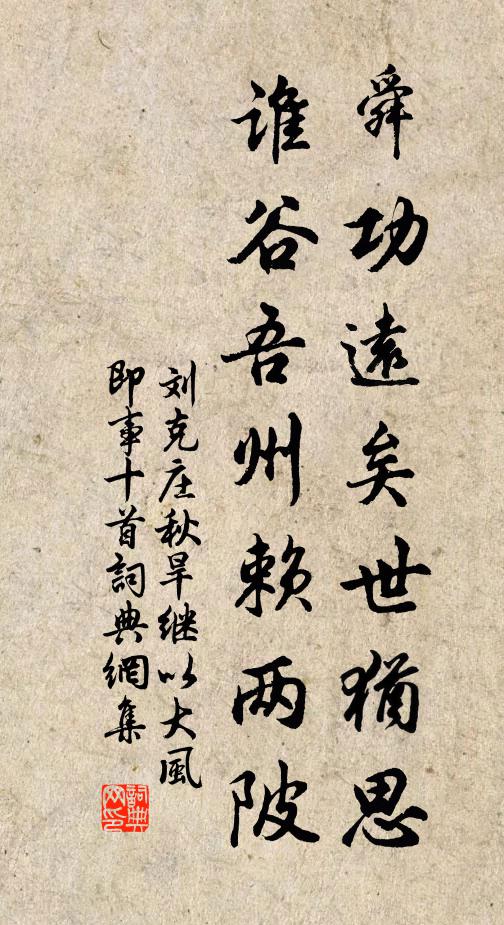 舜功遠矣世猶思
誰谷吾州賴两陂
刘克庄秋旱继以大風
即事十首詞典網集
詞典网印